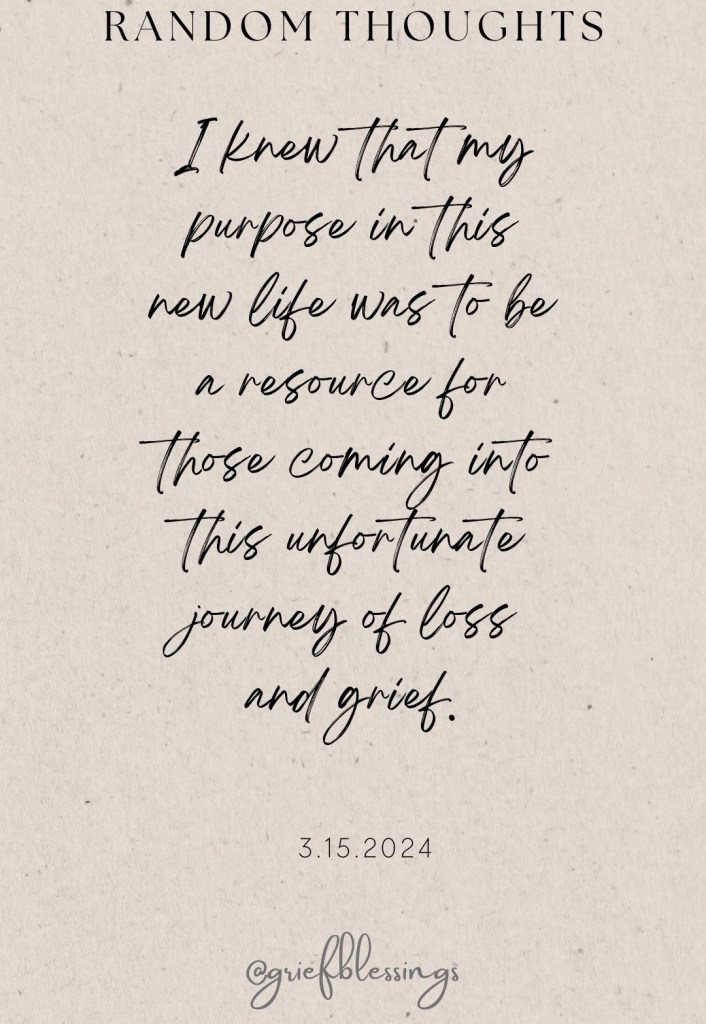 RANDOM THOUGHTS
I knew that my
purpose in this
new life was to be
a resource for
those coming into
this unfortunate
journey of loss
and grief.
3.15.2024
@griefblessings